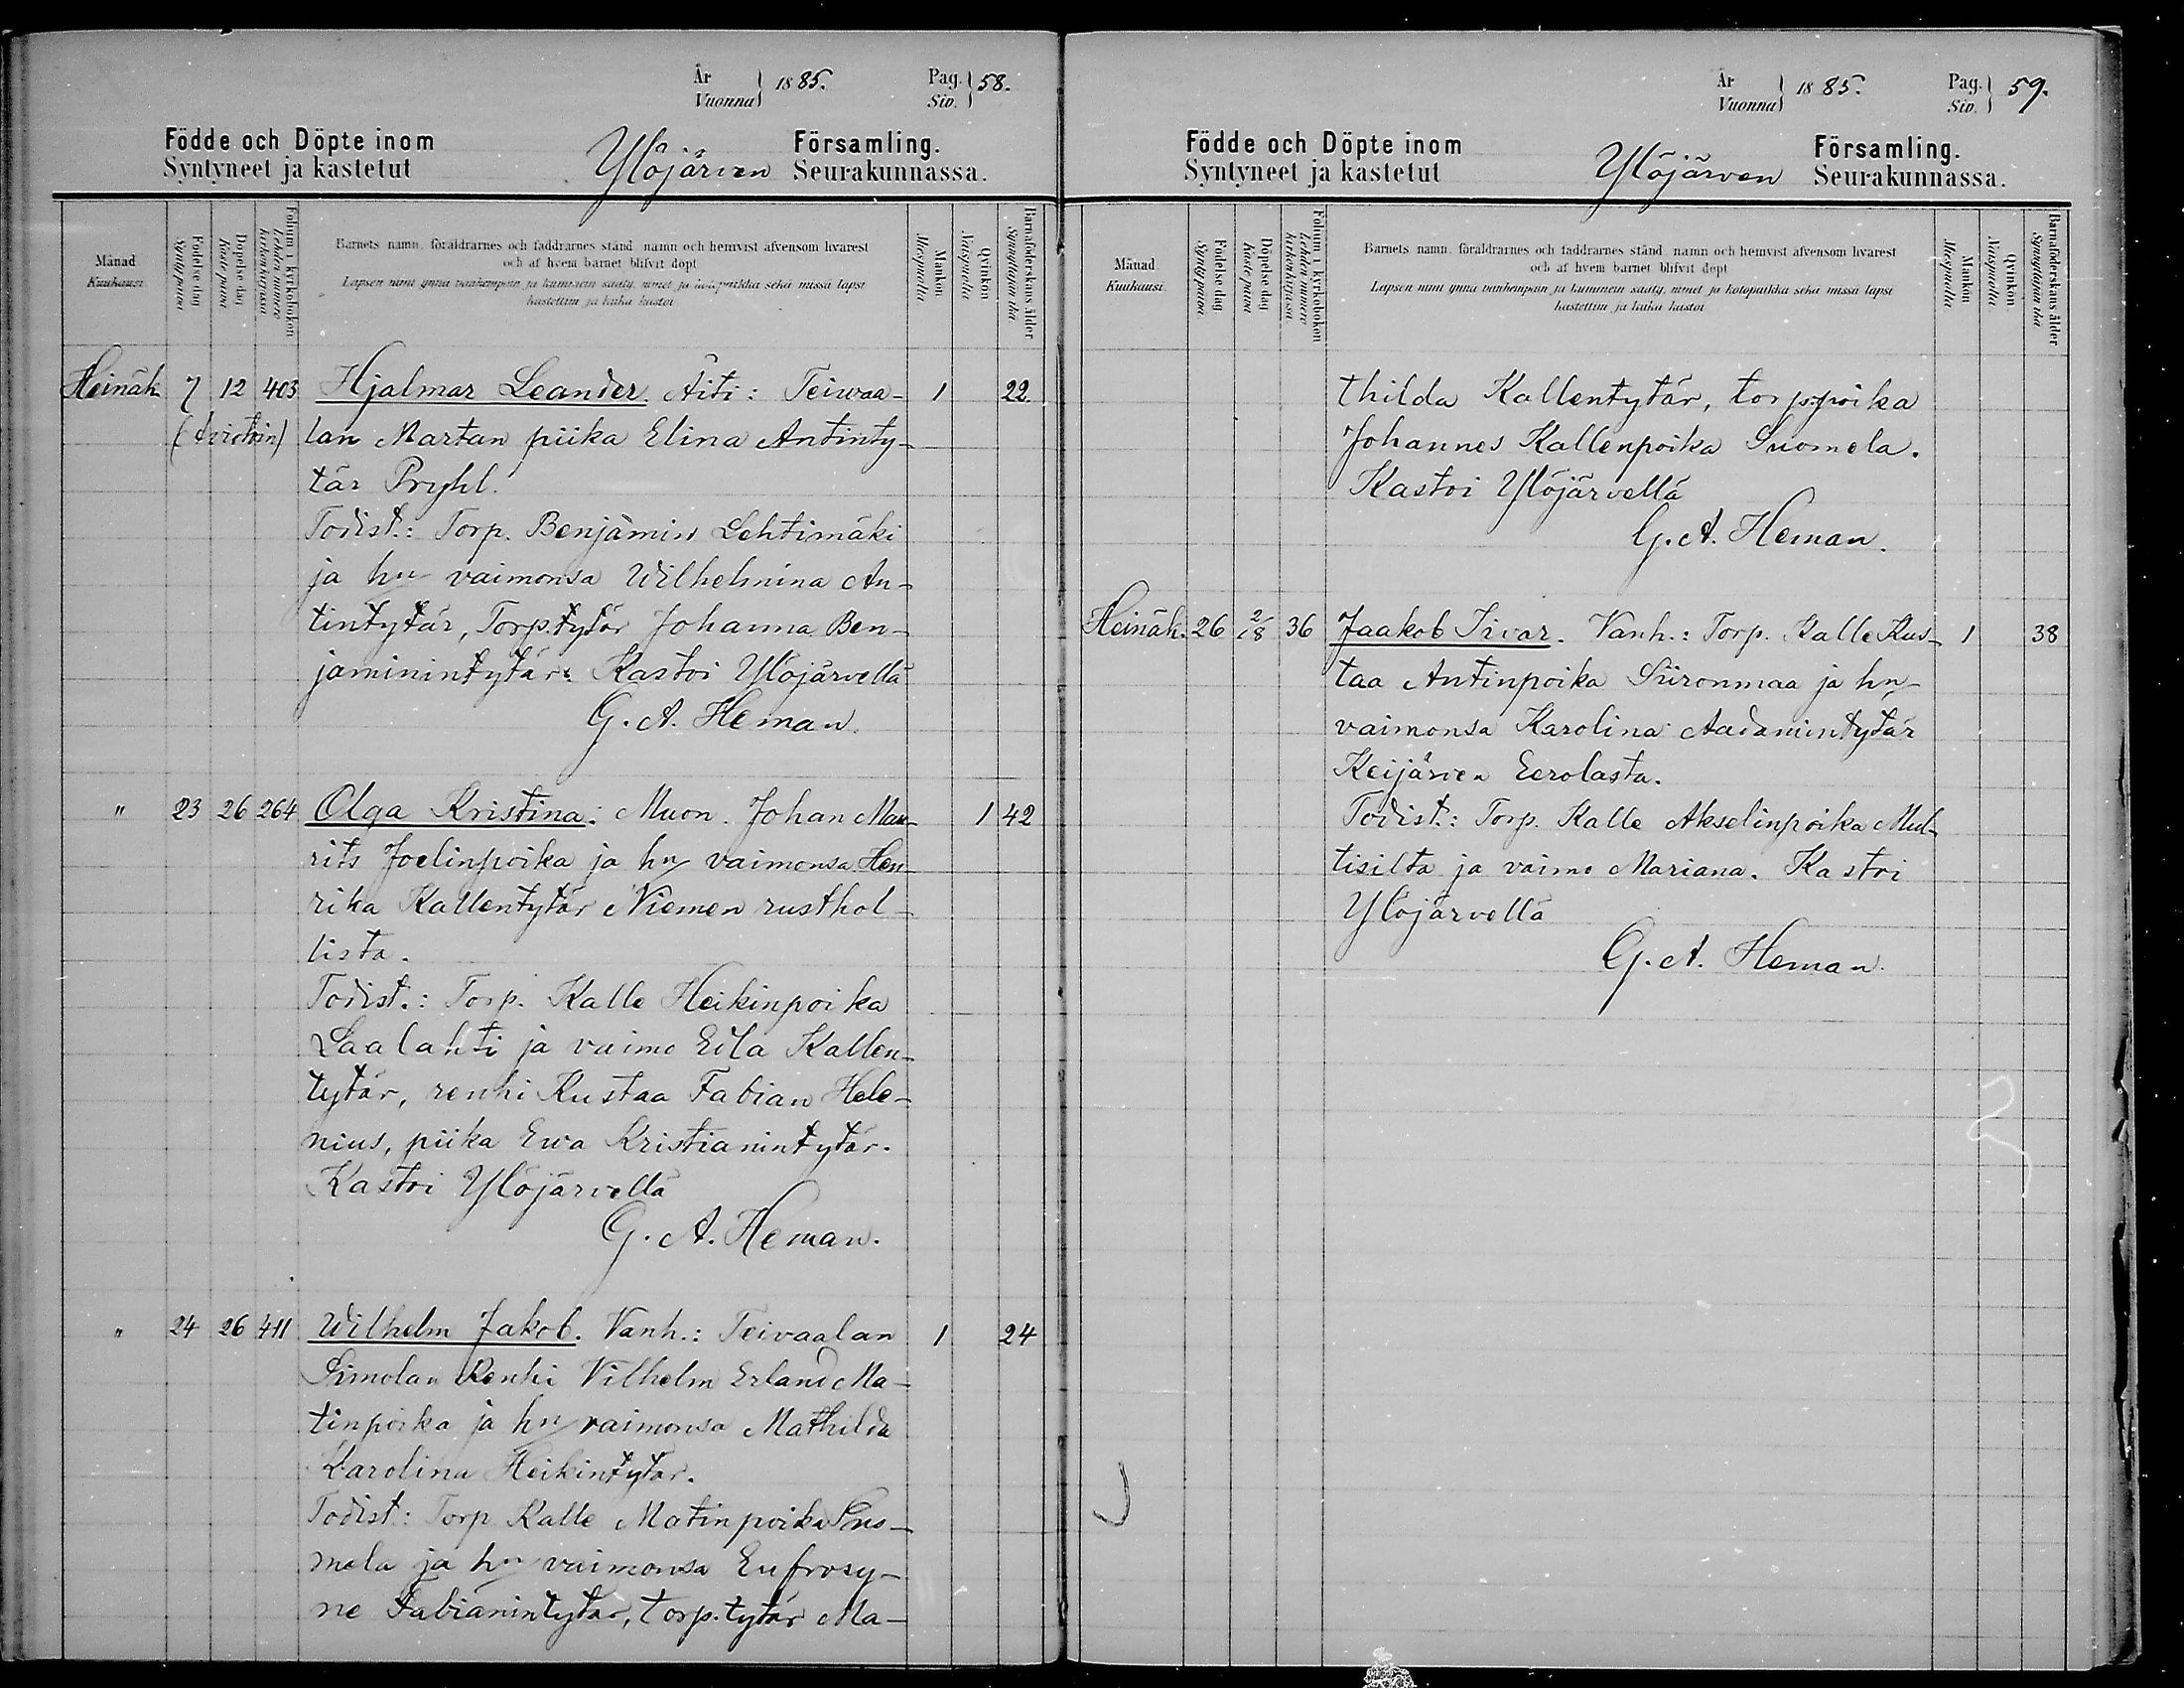 År
Vuonna } 1885.
Pag.
Siv. } 58.
Födde och Döpte inom
Syntyneet ja kastetut
Ylöjärven
Församling.
Seurakunnassa.
Månad
Kuukausi.
Födelse dag
Syntypäivä
Döpelse dag
Kastepäivä
Folium i kyrkoboken
Lehden numero kirkonkirjassa
Barnets namn, föräldrarnes och faddrarnes stånd, namn och hemvist äfvensom hvarest
och af hvem barnet blifvit döpt
Lapsen nimi ynnä vanhempain ja kummein sääty, nimet ja kotopaikka sekä missä lapsi
kastettiin ja kuka kastoi
Mankön
Miespuolia
Qvinkön
Naispuolia
Barnaföderskans ålder
Synnyttäjän ikä
Heinäk. 7 12 403 Hjalmar Leander. Äiti: Teivaa- 1 22.
(Aviotoin) lan Martan piika Elina Antinty-
tär Pryhl.
Todist.: Torp. Benjamin Lehtimäki
ja hn vaimonsa Wilhelmina An-
tintytär, Torp.tytär Johanna Ben-
jaminintytär. Kastoi Ylöjärvellä
G. A. Heman.
" 23 26 264 Olga Kristina: Muon. Johan Mau- 1 42
rits Joelinpoika ja hn vaimonsa Hen-
rika Kallentytär Niemen rusthol-
lista.
Todist.: Torp. Kalle Heikinpoika
Laalahti ja vaimo Eila Kallen-
tytär, renki Kustaa Fabian Hele-
nius, piika Ewa Kristianintytär.
Kastoi Ylöjärvellä
G. A. Heman.
" 24 26 411 Wilhelm Jakob. Vanh.: Teivaalan 1 24
Simolan Renki Vilhelm Erland Ma-
tinpoika ja hn vaimonsa Mathilda
Karolina Heikintytär.
Todist: Torp Kalle Matinpoika Suo-
mela ja hn vaimonsa Eufrosy-
ne Fabianintytär, torp.tytär Ma-
År
Vuonna } 1885.
Pag.
Siv. } 59.
Födde och Döpte inom
Syntyneet ja kastetut
Ylöjärven
Församling.
Seurakunnassa.
Månad.
Kuukausi.
Födelse dag
Syntypäivä.
Döpelse dag
Kastepäivä
Folium i kyrkoboken
Lehden numero kirkonkirjassa.
Barnets namn, föräldrarnes och faddrarnes stånd, namn och hemvist äfvensom hvarest
och af hvem barnet blifvit döpt
Lapsen nimi ynnä vanhempain ja kummein sääty, nimet ja kotopaikka sekä missä lapsi
kastettiin ja kuka kastoi
Mankön
Miespuolia.
Qvinkön
Naispuolia.
Barnaföderskans ålder
Synnyttäjän ikä
thilda Kallentytär, torp.poika
Johannes Kallenpoika Suomela.
Kastoi Ylöjärvellä
G. A. Heman.
Heinäk. 26 2/8 36 Jaakob Iivar. Vanh.: Torp. Kalle Kus- 1 38
taa Antinpoika Siironmaa ja hn
vaimonsa Karolina Aadamintytär
Keijärven Eerolasta.
Todist.: Torp. Kalle Akselinpoika Mul-
tisilta ja vaimo Mariana. Kastoi
Ylöjärvellä
G. A. Heman.